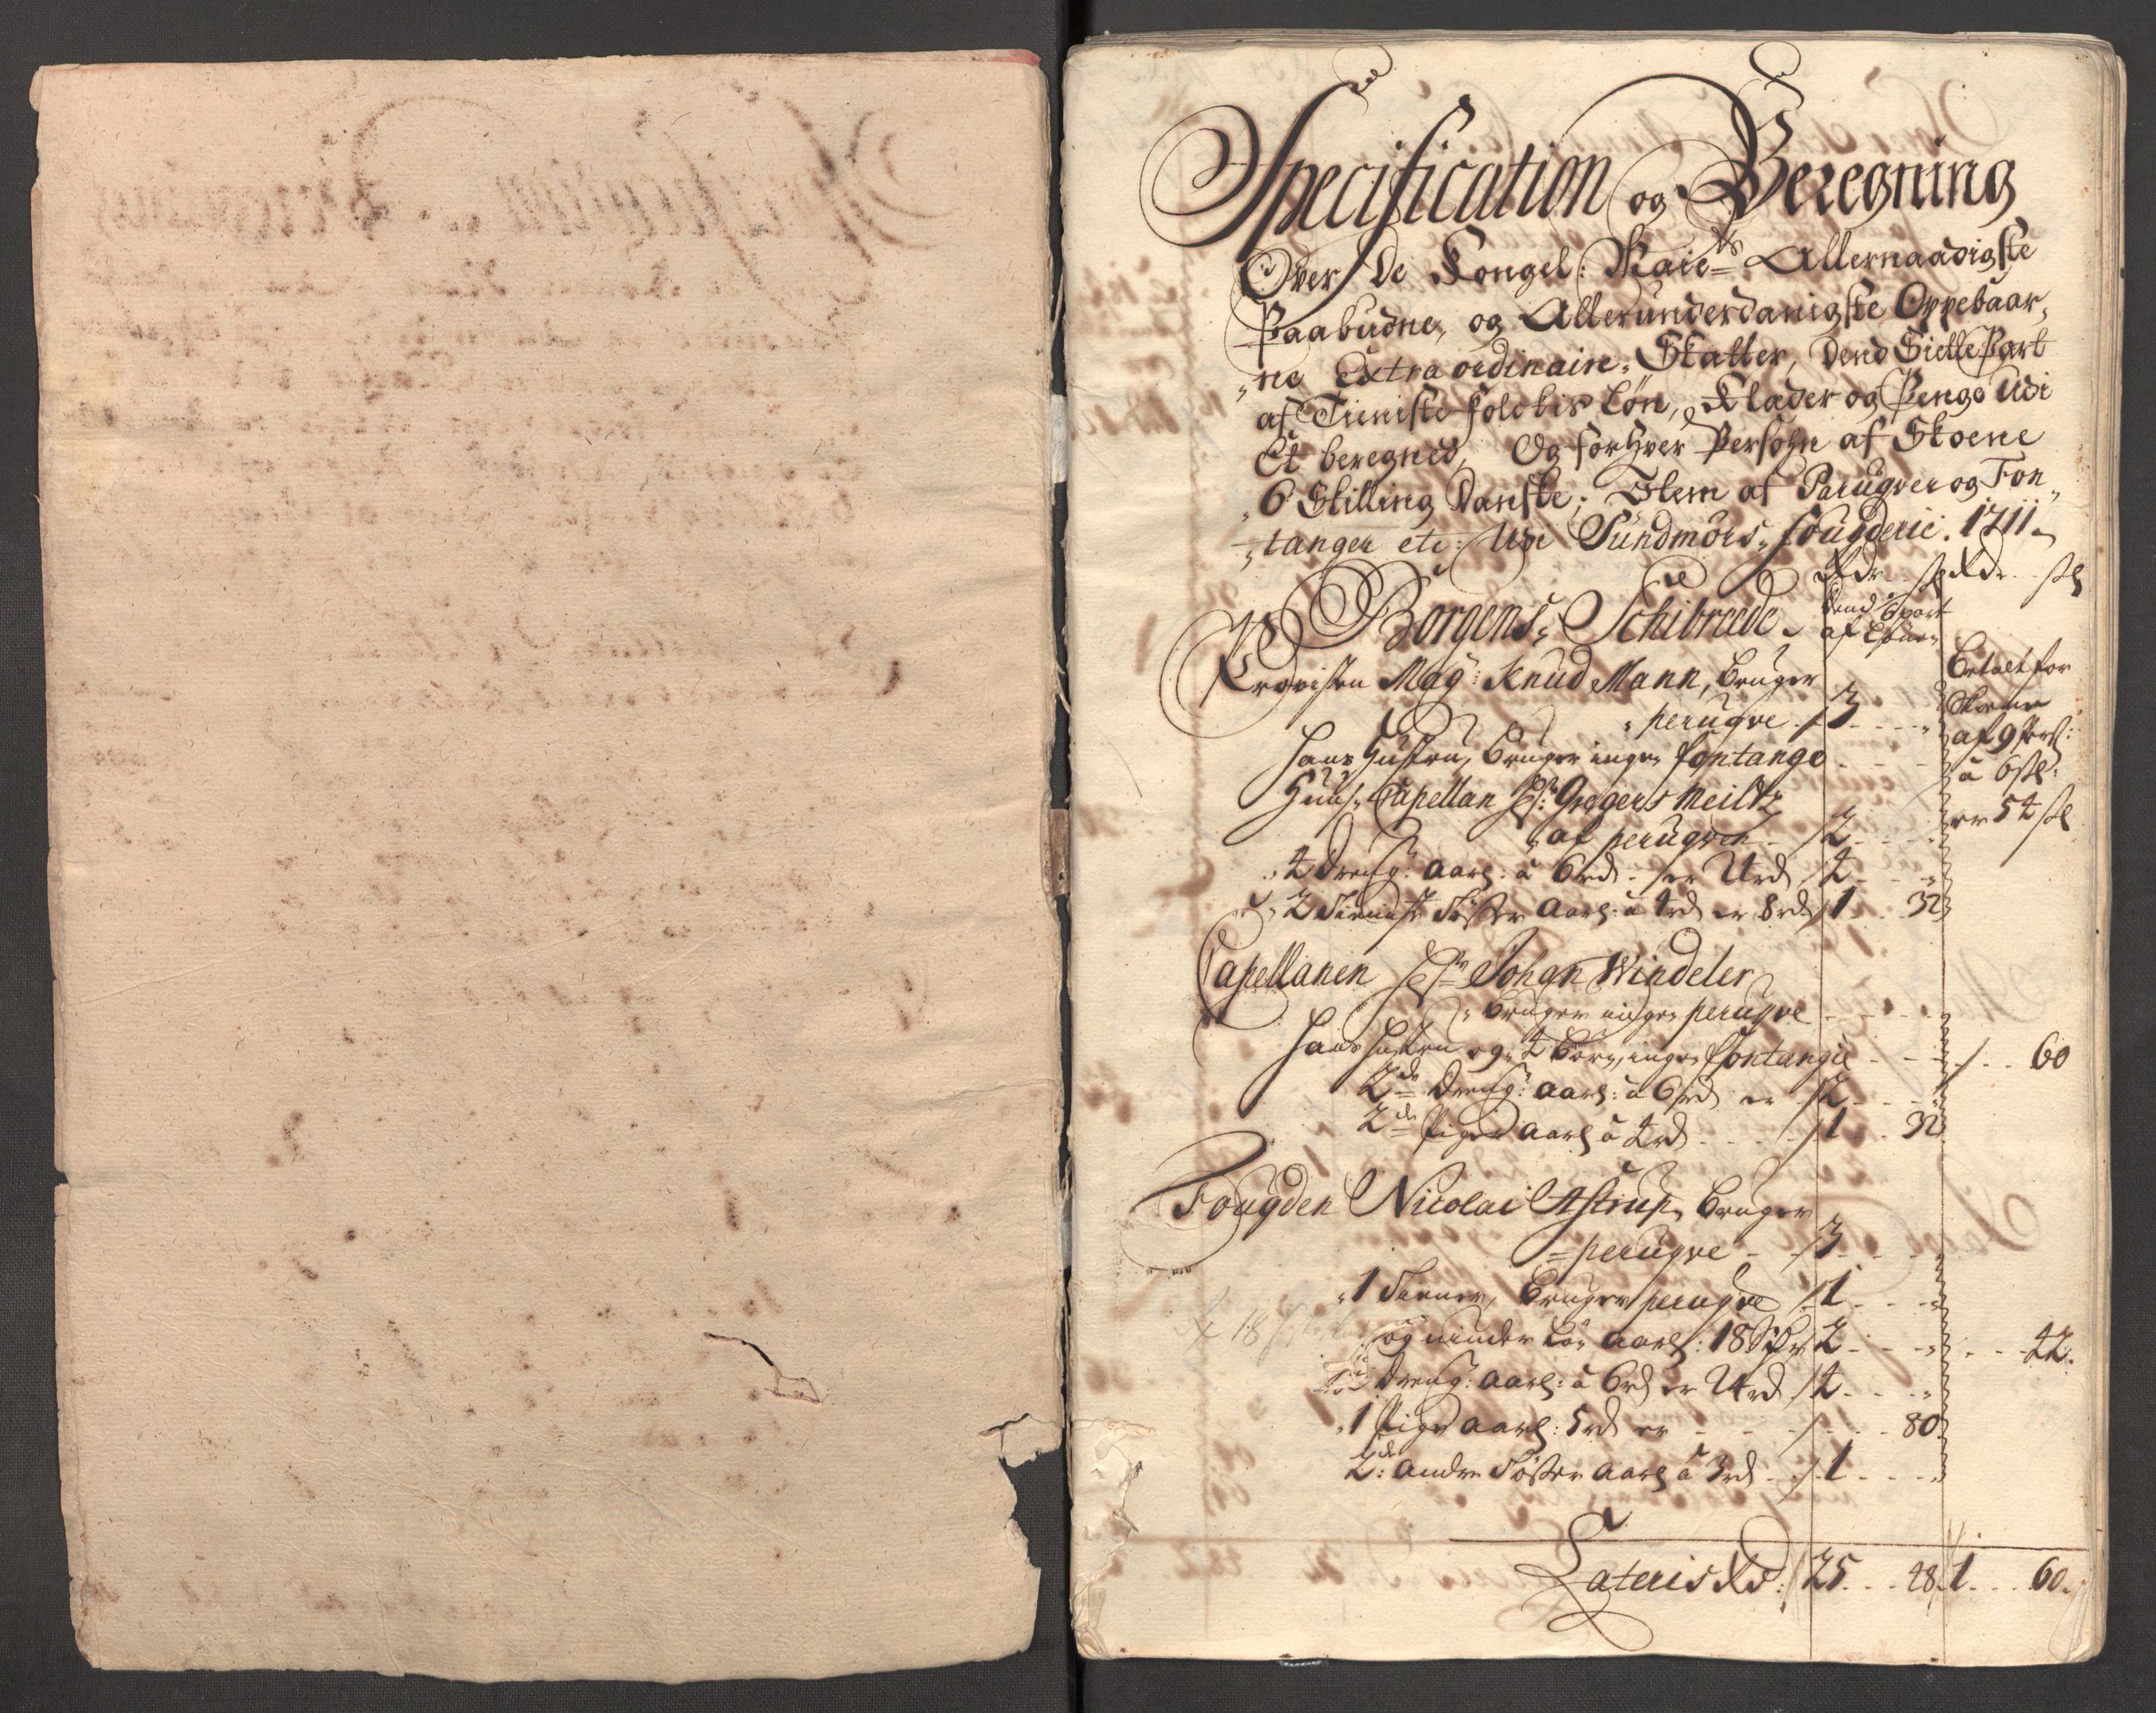 Specification og Beregning
Over De Kongel: Maiets Allernaadigste
Paabudne, og Allerunderdanigste Oppebaar„
„ne Extra ordinaire„ Skatter, Dend Siette Part
af Tieniste folckis Løn, Klæder og Penge Udi
Et beregned, Og for Hver Persohn af Skoene
„6 Skilling Danske; Item af Parugver og Fon„
„tanger etc: Udi Sundmørs„ fougderie. 1711„
Rdr ß Rdr ß
Borgens„ Schibrede„ dend 6 part
af Lønen
Provsten Mag: Knud Mann, bruger betalt for
„perugve 3 Skoene
hans Hustru, bruger ingen fontange af 9 Pers:
a 6 ß:
Huus„ Capellan Hr: Gregers Meildtz er 54 ß
„af perugven 2
„4 Dreng: Aarl: à 6rd er 24rd 4
„2 Tieniste Tøßer Aarl: à 4rd er 8rd 1 32
Capellanen Hr Johan Windeler
„bruger ingen perugve
hans hustru og 4 børn, ingen fontangie 60
2de Dreng: Aarl: à 6rd er 2
2de Piger Aarl à 4rd 1 32
Fougden Nicolai Astrup, bruger
perugve 3
„1 Tiener, bruger perugve 1
og ninder Løn Aarl: 12 2 42
Dreng: Aarl: à 6rd er 24rd 4
„1 Pige Aarl: 5rd er 80
2de: andre Tøßer Aarl à 3rd 1
Lateris Rd: 25 48 1 60